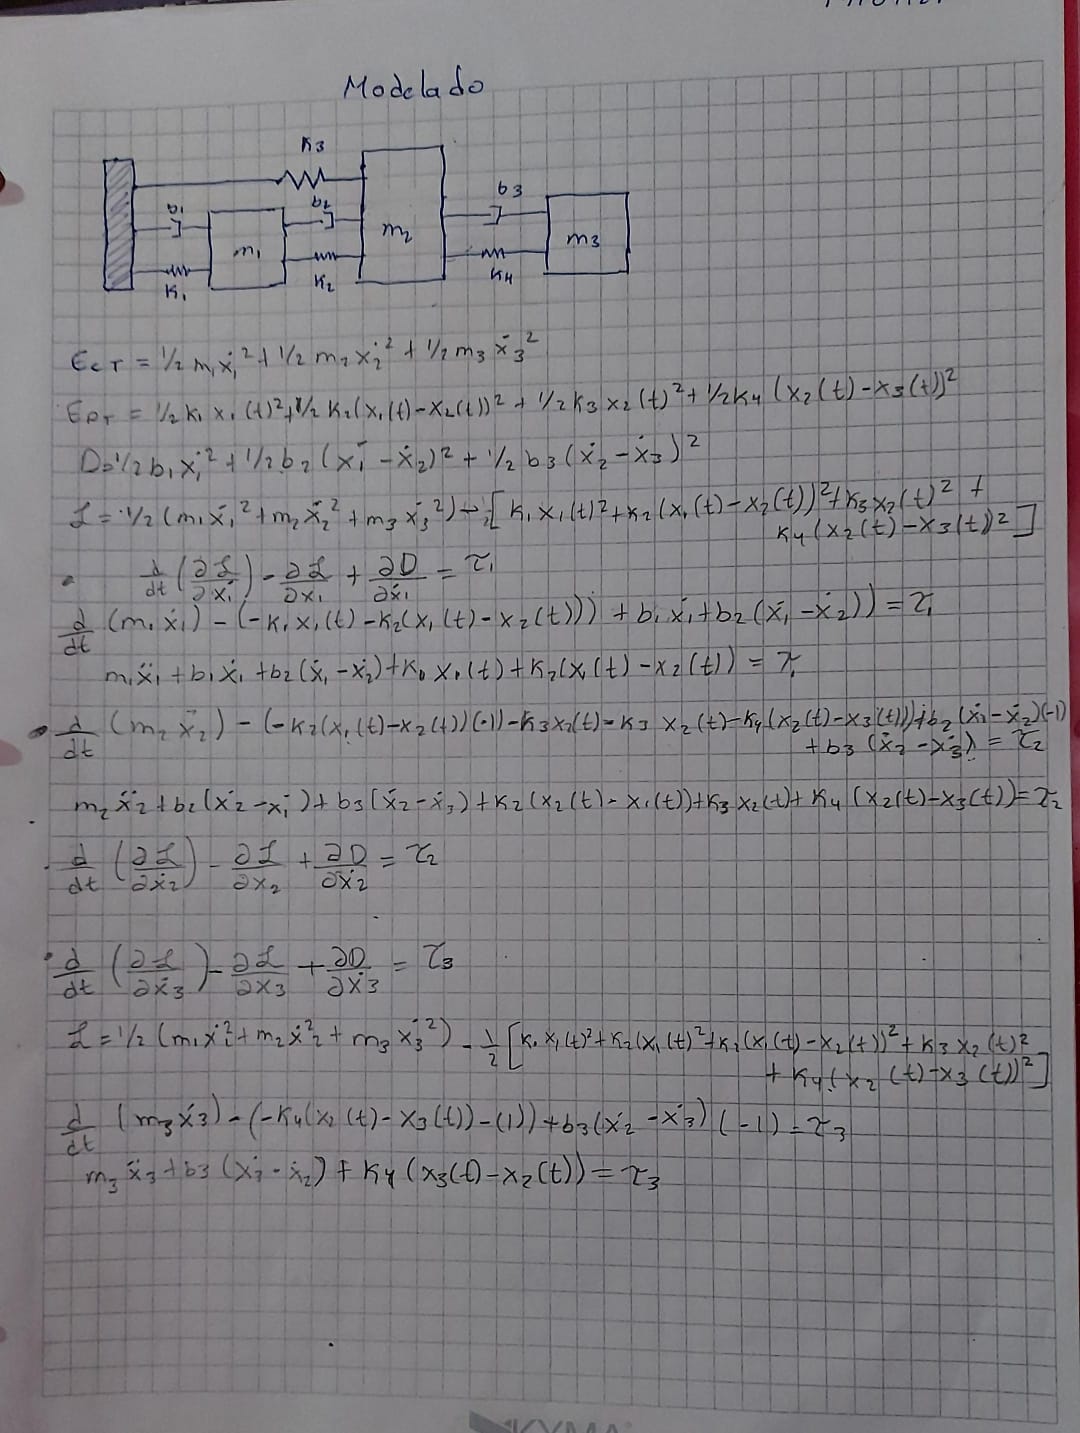 Modelado
K3
b1
b2
b3
m1
m2
m3
K1
K2
K4
EcT = 1/2 m1ẋ1² + 1/2 m2ẋ2² + 1/2 m3 ẋ3²
EpT = 1/2 K1 x1(t)² + 1/2 K2(x1(t)-x2(t))² + 1/2 K3 x2(t)² + 1/2 K4 (x2(t)-x3(t))²
D = 1/2 b1 ẋ1² + 1/2 b2 (ẋ1 - ẋ2)² + 1/2 b3 (ẋ2 - ẋ3)²
ℒ = 1/2 (m1ẋ1² + m2ẋ2² + m3ẋ3²) - 1/2 [K1 x1(t)² + K2(x1(t)-x2(t))² + K3 x2(t)² +
K4(x2(t)-x3(t))²]
• d/dt (∂ℒ/∂ẋ1) - ∂ℒ/∂x1 + ∂D/∂ẋ1 = τ1
d/dt (m1 ẋ1) - (-K1 x1(t) - K2(x1(t) - x2(t))) + b1 ẋ1 + b2(ẋ1 - ẋ2)) = τ1
m1ẍ1 + b1ẋ1 + b2(ẋ1 - ẋ2) + K1 x1(t) + K2(x1(t) - x2(t)) = τ1
• d/dt (m2 ẋ2) - (-K2(x1(t)-x2(t))(-1)) - K3x2(t) - K3 x2(t) - K4(x2(t)-x3(t))) + b2(ẋ1 - ẋ2)(-1)
+ b3 (ẋ2 - ẋ3) = τ2
m2 ẍ2 + b2(ẋ2 - ẋ1) + b3(ẋ2 - ẋ3) + K2(x2(t) - x1(t)) + K3 x2(t) + K4 (x2(t)-x3(t)) = τ2
• d/dt (∂ℒ/∂ẋ2) - ∂ℒ/∂x2 + ∂D/∂ẋ2 = τ2
• d/dt (∂ℒ/∂ẋ3) - ∂ℒ/∂x3 + ∂D/∂ẋ3 = τ3
ℒ = 1/2 (m1ẋ1² + m2ẋ2² + m3 ẋ3²) - 1/2 [K1 x1(t)² + K2(x1(t)² + K2(x1(t) - x2(t))² + K3 x2(t)²
+ K4(x2(t)-x3(t))²]
d/dt (m3ẋ3) - (-K4(x2(t) - x3(t)) - (1)) + b3(ẋ2 - ẋ3)(-1) = τ3
m3 ẍ3 + b3 (ẋ3 - ẋ2) + K4 (x3(t) - x2(t)) = τ3
KYMA